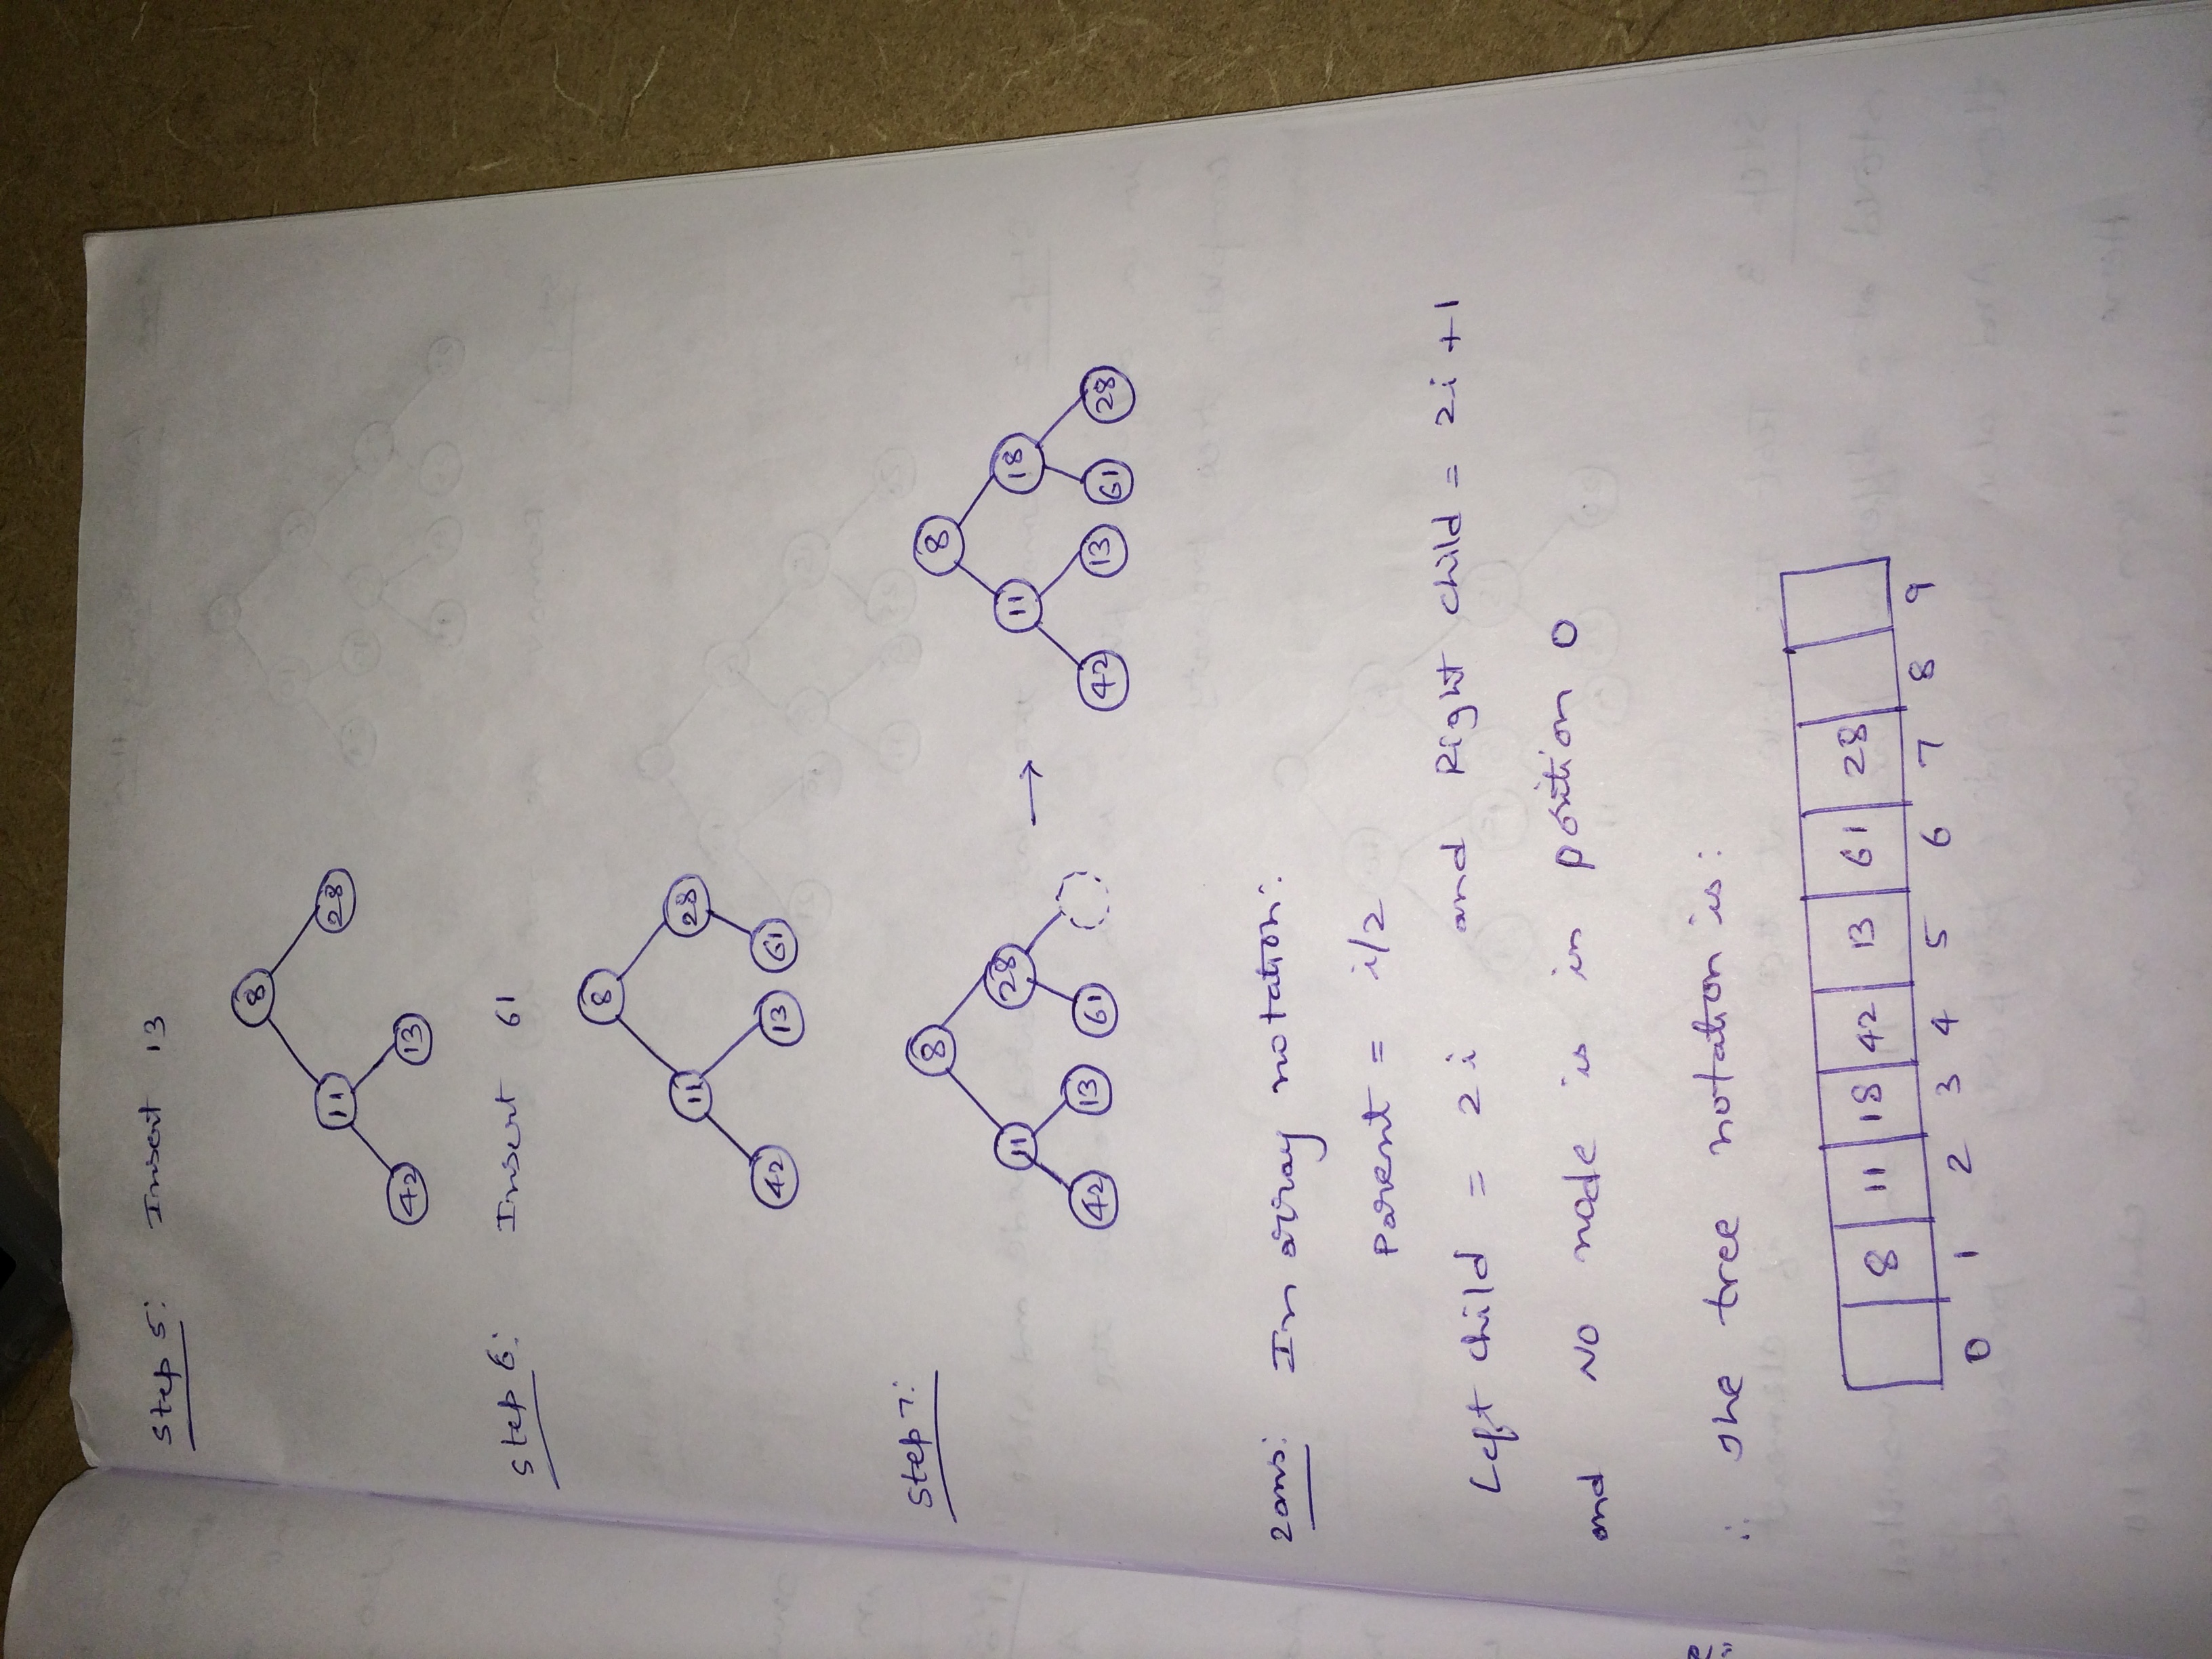 Step 5: Insert 13
8
11 28
42 13
Step 6: Insert 61
8
11 28
42 13 61
Step 7:
8 8
11 28 → 11 18
42 13 61 42 13 61 28
2ans: In array notation:
Parent = i/2
Left child = 2i and Right child = 2i+1
and No node is in position 0
∴ The tree notation is:
8 11 18 42 13 61 28
0 1 2 3 4 5 6 7 8 9